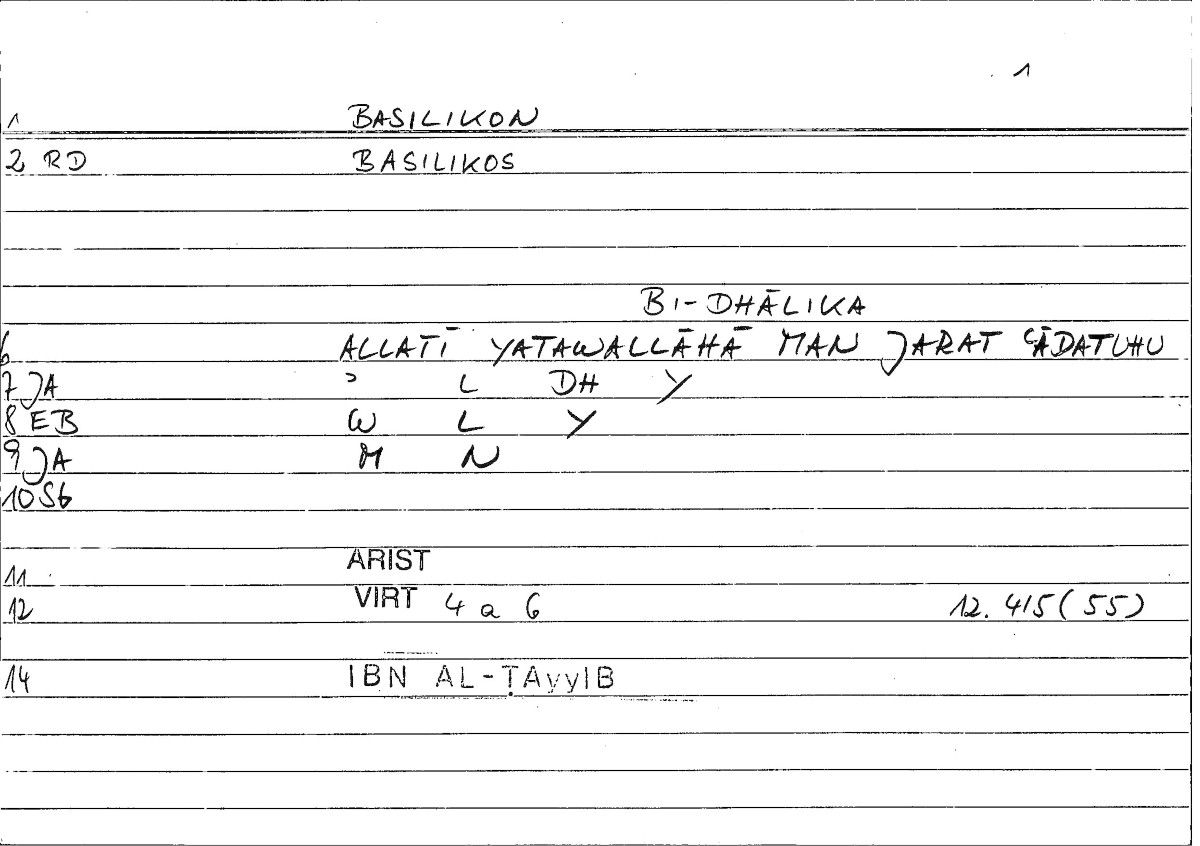 1
1 BASILIKON
2 RD BASILIKOS
BI-DHĀLIKA
6 ALLATĪ YATAWALLĀHĀ MAN JARAT ʿĀDATUHU
7 JA ʾ L DH Y
8 EB W L Y
9 JA M N
10 S6
11 ARIST
12 VIRT 4 a 6 12.415(55)
14 IBN AL-ṬAyyIB